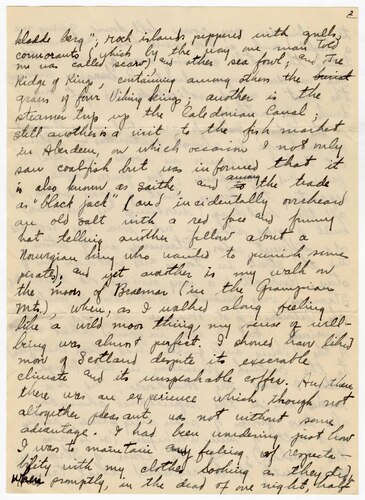 2
bladde berg"; rock islands peppered with gulls,
cormorants (which by the way one man told
me was called scarv) and other sea fowl; and The
Ridge of Kings, containing among others the burial
grans of four Viking kings; another is the
steamer trip up the Caledonian Canal;
still another is a visit to the fish market
in Aberdeen, on which occasion I not only
saw coalfish but was informed that it
is also known as saithe, and among the trade
as "black jack" (and incidentally overheard
an old salt with a red face and funny
hat telling another fellow about a
Norwegian king who wanted to punish some
pirates), and yet another is my walk on
the moors of Braemar (in the Grampian
Mts.), when, as I walked along feeling
like a wild moor thing, my sense of well-
being was almost perfect. I should have liked
more of Scotland despite its execrable
climate and its unspeakable coffee. And then
there was an experience which though not
altogether pleasant, was not without some
advantage. I had been wondering just how
I was to maintain any feeling of respecta-
bility with my clothes looking as they did,
when promptly, in the dead of one night,